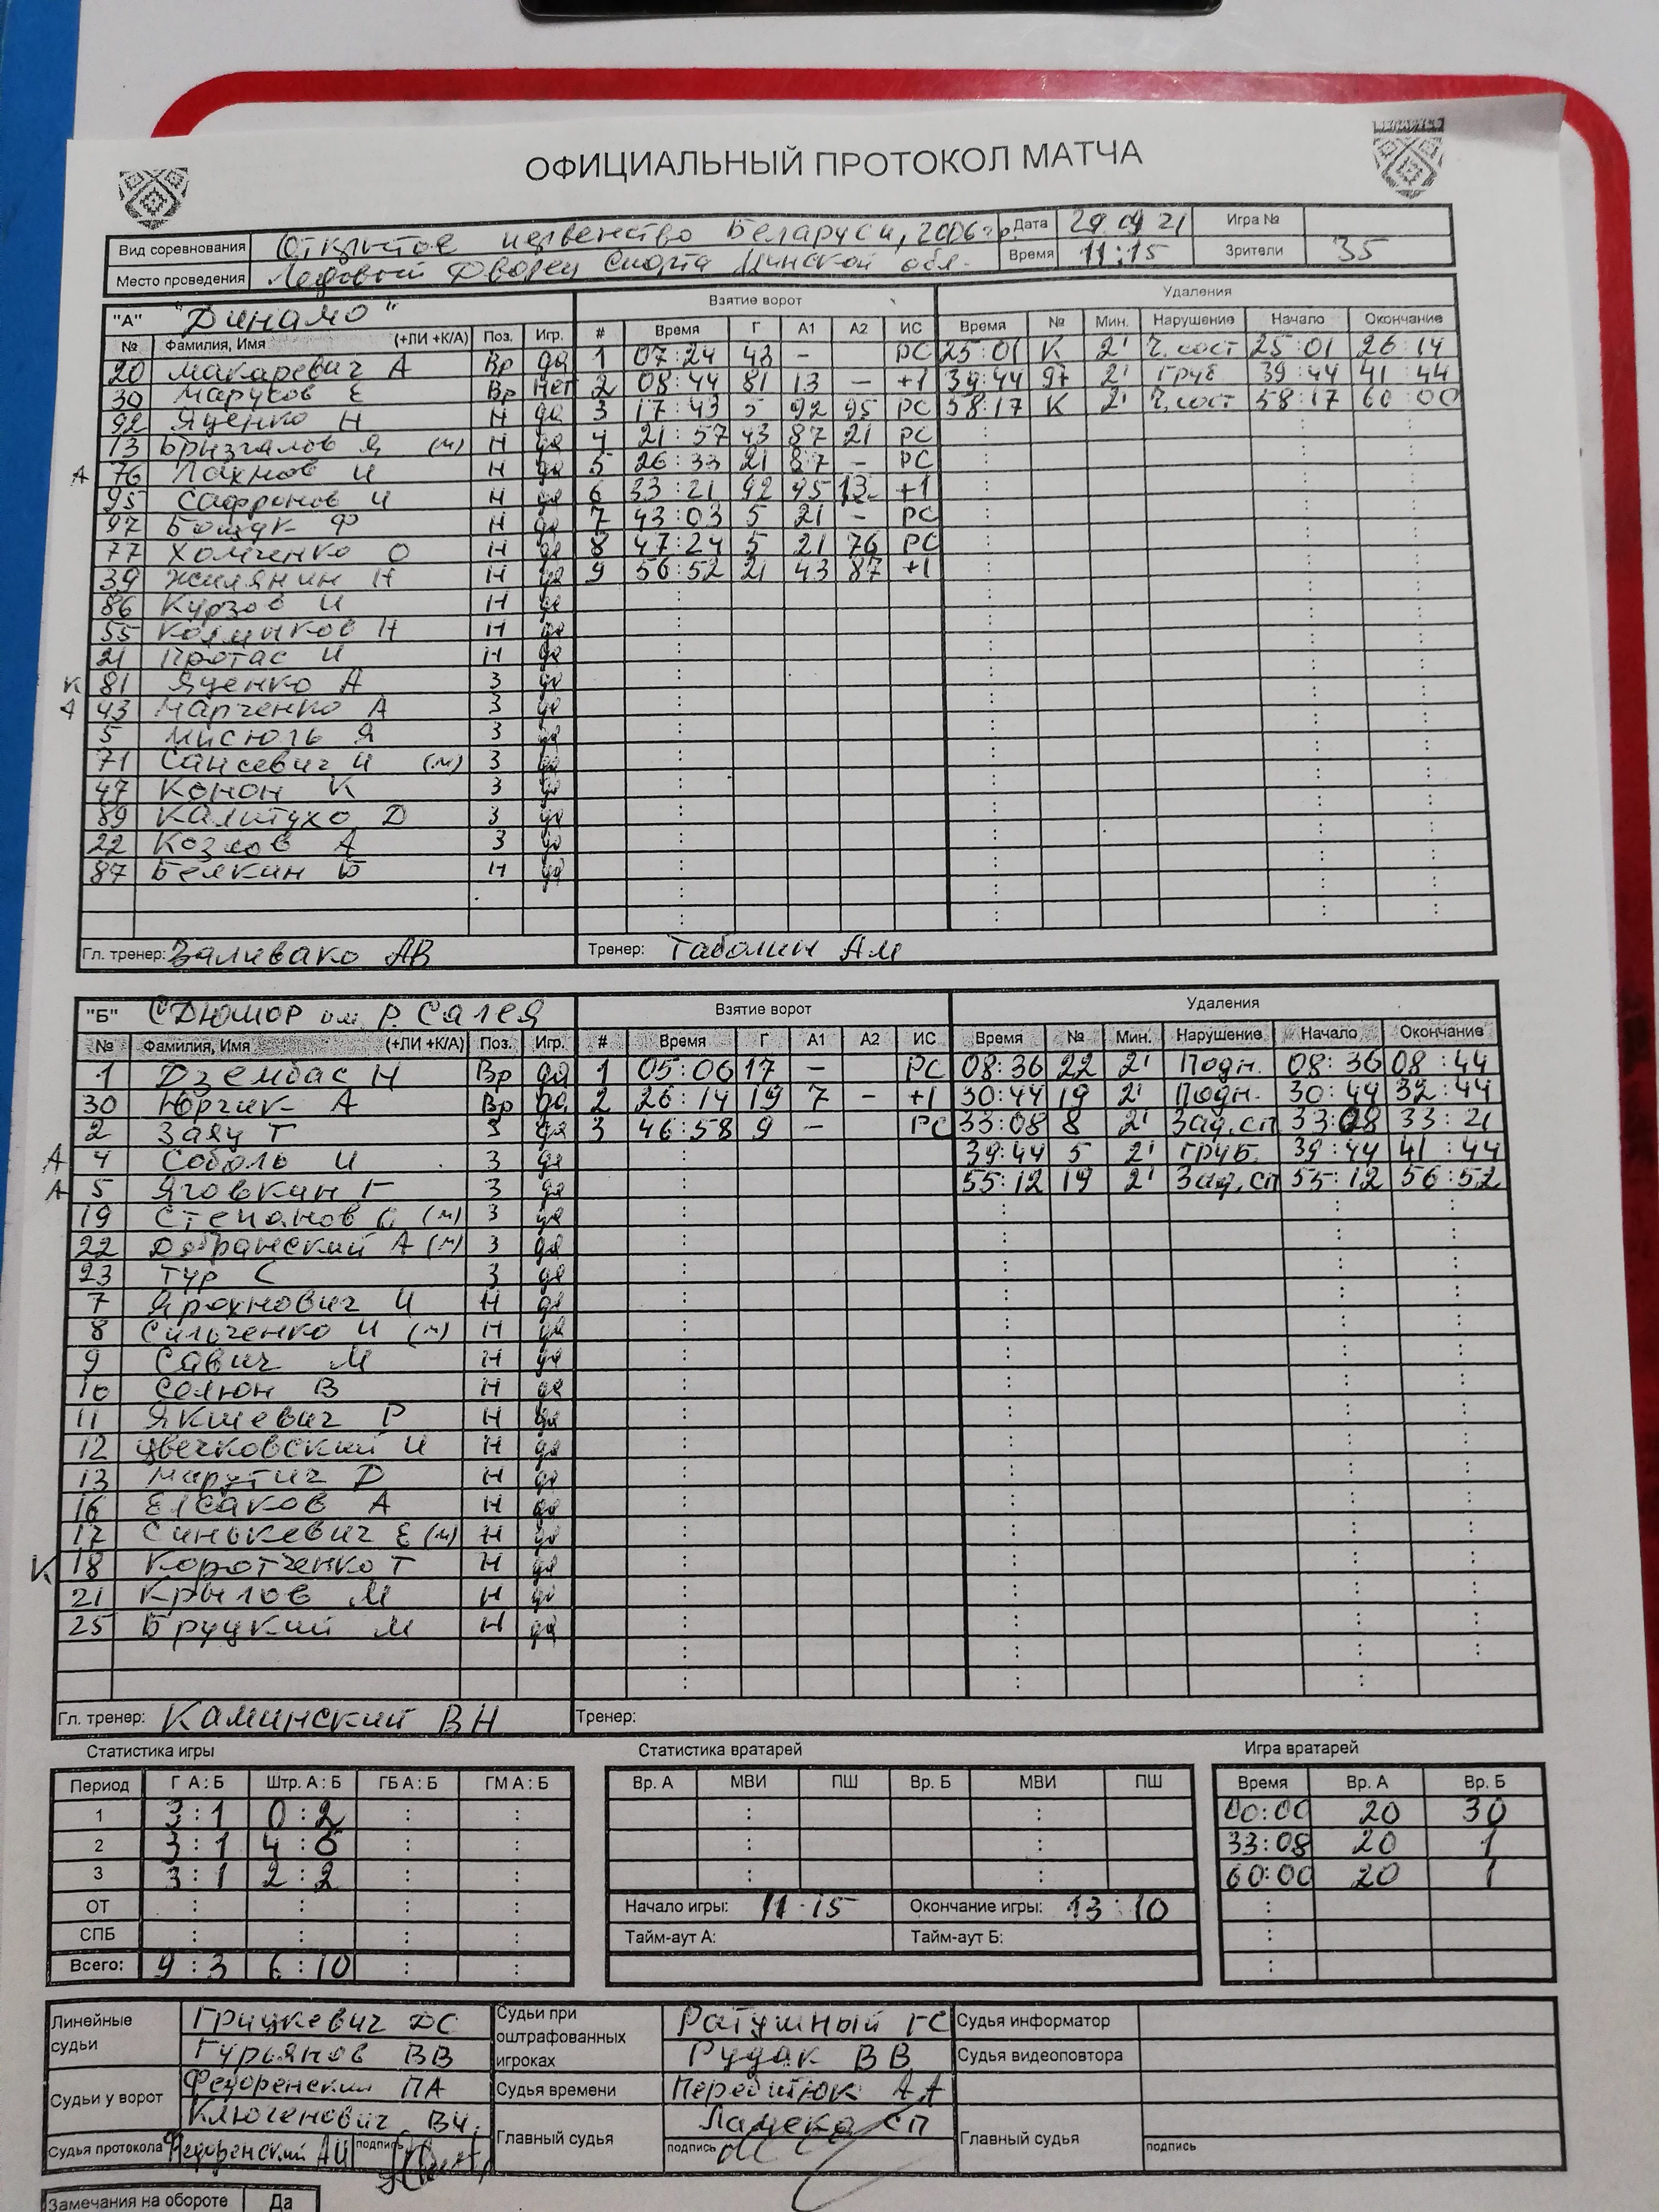 ОФИЦИАЛЬНЫЙ ПРОТОКОЛ МАТЧА
Вид соревнования Открытое первенство Беларуси, 2006 г.р. Дата 29 04 21 Игра №
Место проведения Ледовый Дворец Спорта Минской обл. Время 11:15 Зрители 35
"А" "Динамо" Взятие ворот Удаления
№ Фамилия, Имя (+ЛИ +К/А) Поз. Игр. # Время Г А1 А2 ИС Время № Мин. Нарушение Начало Окончание
20 Макаревич А Вр да 1 07:24 43 - РС 25:01 К 2' Ч.сост 25:01 26:14
30 Марусов Е Вр нет 2 08:44 81 13 - +1 39:44 97 2' Груб 39:44 41:44
92 Яценко Н Н да 3 17:43 5 92 95 РС 58:17 К 2' Ч.сост 58:17 60:00
13 Бризгалов Я (м) Н да 4 21:57 43 87 21 РС
А 76 Пахнов И Н да 5 26:33 21 87 - РС
95 Сафронов И Н да 6 33:21 92 95 13 +1
97 Бощук Ф Н да 7 43:03 5 21 - РС
77 Хомченко О Н да 8 47:24 5 21 76 РС
39 Жилянин Н Н да 9 56:52 21 43 87 +1
86 Курзов И Н да
55 Колмыков Н Н да
21 Протас И Н да
К 81 Яценко А З да
А 43 Марченко А З да
5 Мисюль Я З да
71 Сансевич И (м) З да
47 Конон К З да
89 Калитухо Д З да
22 Козлов А З да
87 Белкин Б Н да
Гл. тренер: Заливако АВ Тренер: Таболин АМ
"Б" СДЮШОР им. Р. Салея Взятие ворот Удаления
№ Фамилия, Имя (+ЛИ +К/А) Поз. Игр. # Время Г А1 А2 ИС Время № Мин. Нарушение Начало Окончание
1 Дзембас Н Вр да 1 05:06 17 - РС 08:36 22 2' Подн. 08:36 08:44
30 Юрчик А Вр да 2 26:14 19 7 - +1 30:44 19 2' Подн. 30:44 32:44
2 Заяц Т З да 3 46:58 9 - РС 33:08 8 2' Зад.сп 33:08 33:21
А 4 Соболь И З да 39:44 5 2' Груб. 39:44 41:44
А 5 Яговкин Г З да 55:12 19 2' Зад.сп 55:12 56:52
19 Степанов (м) З да
22 Добранский А (м) З да
23 Тур С З да
7 Ярохнович И Н да
8 Сильченко И (м) Н да
9 Савич М Н да
10 Селюн В Н да
11 Якшевич Р Н да
12 Цвечковский И Н да
13 Марутич Д Н да
16 Елсаков А Н да
17 Синькевич Е (м) Н да
К 18 Коротченко Т Н да
21 Крылов М Н да
25 Бруцкий М Н да
Гл. тренер: Каминский ВН Тренер:
Статистика игры Статистика вратарей Игра вратарей
Период Г А : Б Штр. А : Б ГБ А : Б ГМ А : Б Вр. А МВИ ПШ Вр. Б МВИ ПШ Время Вр. А Вр. Б
1 3:1 0:2 00:00 20 30
2 3:1 4:6 33:08 20 1
3 3:1 2:2 60:00 20 1
ОТ Начало игры: 11:15 Окончание игры: 13:10
СПБ Тайм-аут А: Тайм-аут Б:
Всего: 9:3 6:10
Линейные судьи Грицкевич ДС Судьи при оштрафованных игроках Ратушный ГС Судья информатор
Гурьянов ВВ Рудак ВВ Судья видеоповтора
Судьи у ворот Федоренский ПА Судья времени Передитюк АА
Ключенович ВЧ. Главный судья Ламеко СП Главный судья
Судья протокола Федоренский АЦ подпись подпись подпись
Замечания на обороте Да